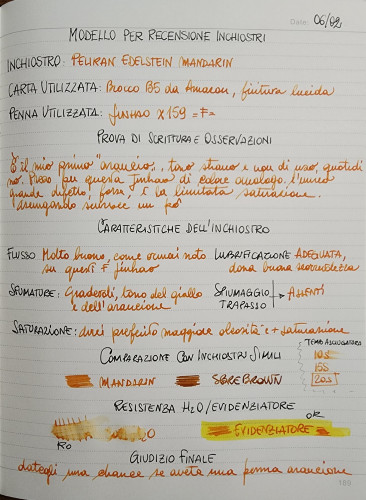 Date: 06/02
MODELLO PER RECENSIONE INCHIOSTRI
INCHIOSTRO: PELIKAN EDELSTEIN MANDARIN
CARTA UTILIZZATA: Blocco B5 da Amazon, finitura lucida
PENNA UTILIZZATA: JINHAO X159 =F=
PROVA DI SCRITTURA E OSSERVAZIONI
È il mio primo "arancio", tono strano e non di uso quotidi
no. Preso per questa Jinhao di colore analogo. L'unico
grande difetto, forse, è la limitata saturazione.
Asciugando schiarisce un po'
CARATTERISTICHE DELL'INCHIOSTRO
FLUSSO: Molto buono, come ormai noto
su questi F Jinhao
LUBRIFICAZIONE ADEGUATA,
dona buona scorrevolezza
SFUMATURE: Gradevoli, tono del giallo
e dell'arancione
SPIUMAGGIO
TRAPASSO
ASSENTI
SATURAZIONE: avrei preferito maggiore oleosità e + saturazione
COMPARAZIONE CON INCHIOSTRI SIMILI
TEMPO ASCIUGATURA
10s
15s
20s
MANDARIN
SBREBROWN
RESISTENZA H2O/EVIDENZIATORE
OK
H2O
EVIDENZIATORE
GIUDIZIO FINALE
dategli una chance se avete una penna arancione
169